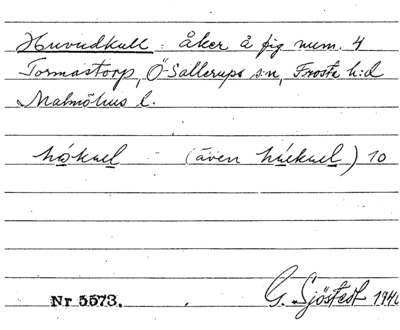 Huvudkull : åker å fig num. 4
Tormastorp, Ö-Sallerups s:n, Frosta h:d
Malmöhus l.
håkuel (även håekuel) 10
Nr 5573. G. Sjöstedt 1940